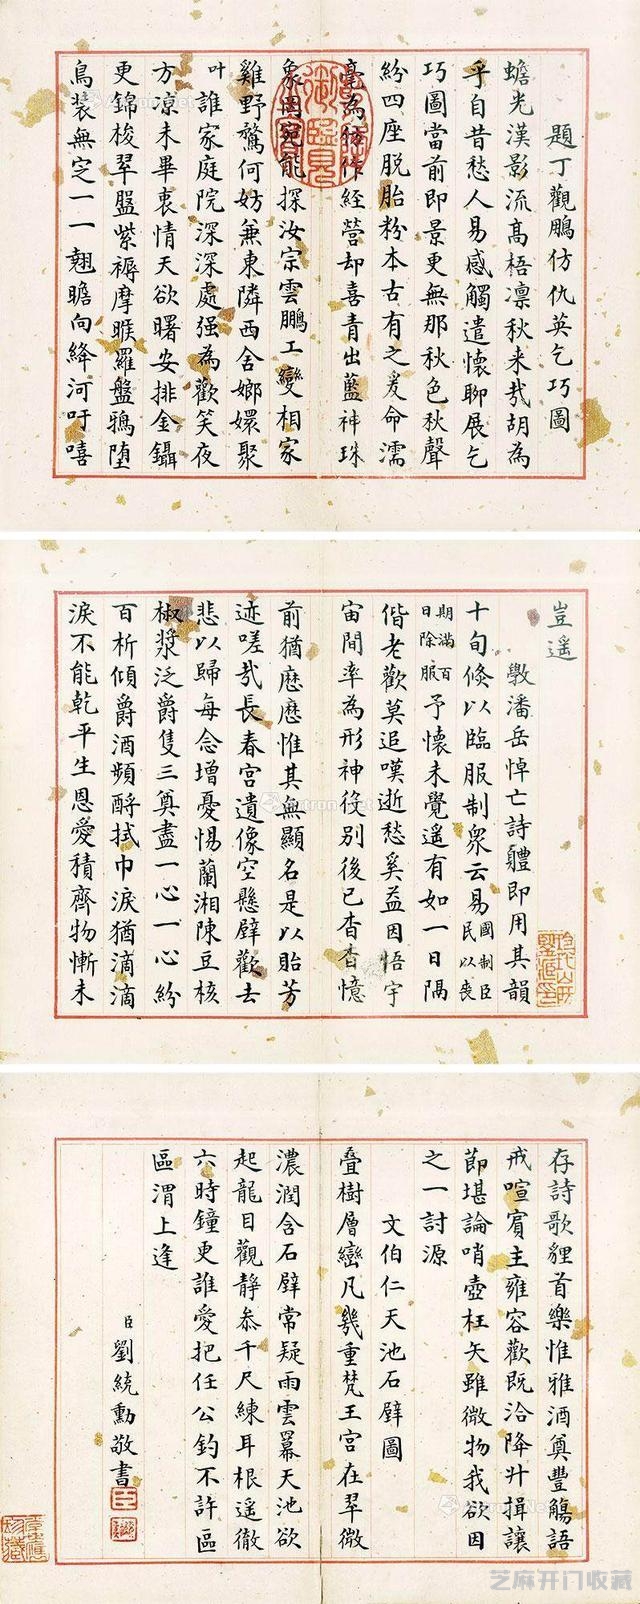 題丁觀鵬仿仇英乞巧圖
蟾光漢影流高梧凛秋来㢤胡為
乎自昔愁人易感觸遣懷聊展乞
巧圖當前即景更無那秋色秋聲
紛四座脱胎粉本古有之爰命濡
毫為仿作經營却喜青出藍神珠
象罔宛能探汝宗雲鵬工變相家
雞野鶩何妨兼東隣西舍嫏嬛聚
叶誰家庭院深深處强為歡笑夜
方凉未畢衷情天欲曙安排金鑷
更錦梭翠盤紫褥摩睺羅盤鴉墮
鳥装無定一一翹瞻向絳河吁嘻
豈遥
斅潘岳悼亡詩體即用其韻
十旬倐以臨服制衆云易國制臣民以喪
期滿百日除服予懷未覺遥有如一日隅
偕老歡莫追嘆逝愁奚益因悟宇
宙間率為形神役別後已杳杳憶
前猶歴歴惟其無顯名是以貽芳
迹嗟㢤長春宫遺像空懸壁歡去
悲以歸每念增憂惕蘭湘陳豆核
椒漿泛爵隻三奠盡一心一心紛
百析傾爵酒頻酹拭巾淚猶滴滴
淚不能乾平生恩愛積齊物慚未
存詩歌貍首樂惟雅酒奠豐觴語
戒喧賓主雍容歡既洽降升揖讓
節堪論哨壺枉矢雖微物我欲因
之一討源
文伯仁天池石壁圖
疊樹層巒凡幾重梵王宫在翠微
濃潤含石壁常疑雨雲羃天池欲
起龍目觀静叅千尺練耳根遥徹
六時鐘更誰愛把任公釣不許區
區渭上逢
臣劉統勳敬書
芝麻开门收藏